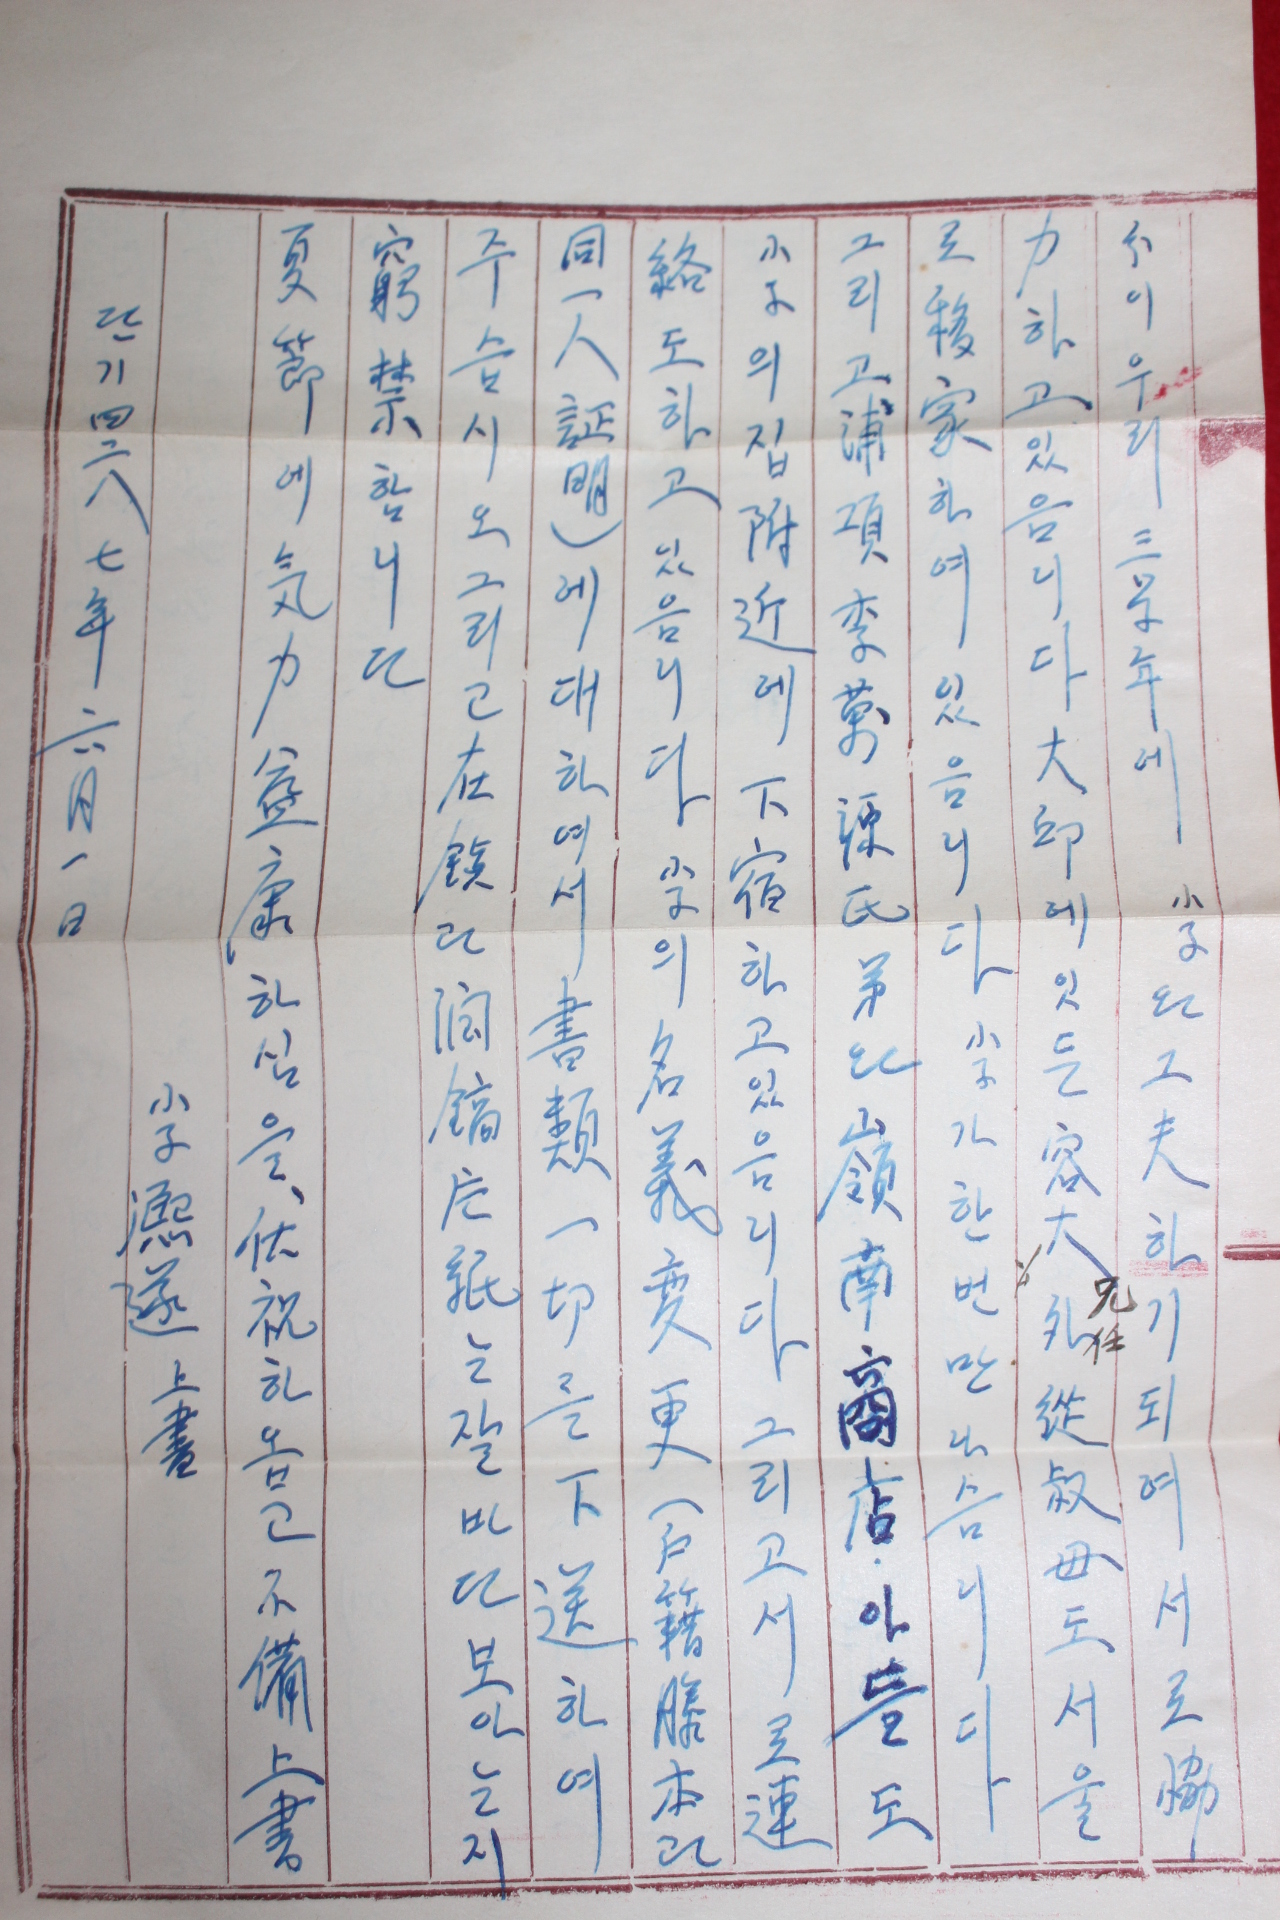 이 우리 三学年에 小子와 그夫하기되여서로 協
力하고있음니다 大邱에잇든 容大兄 外從叔母도서울
로移家하여있음니다 小子가한번만났슴니다
그리고浦項李萬源氏弟와 嶺南商店아들도
小子의집附近에下宿하고있음니다 그리고서로連
絡도하고있음니다 小子의名義変更(戶籍謄本과
同一人証明)에대하여서書類一切를下送하여
주슴시오 그리고在鎭과 潤鎬片紙는잘받다보아는지
窮禁함니다
夏節에気力益康하심을、伏祝하옴고不備上書
小子 上書
단기四二八七年六月一日